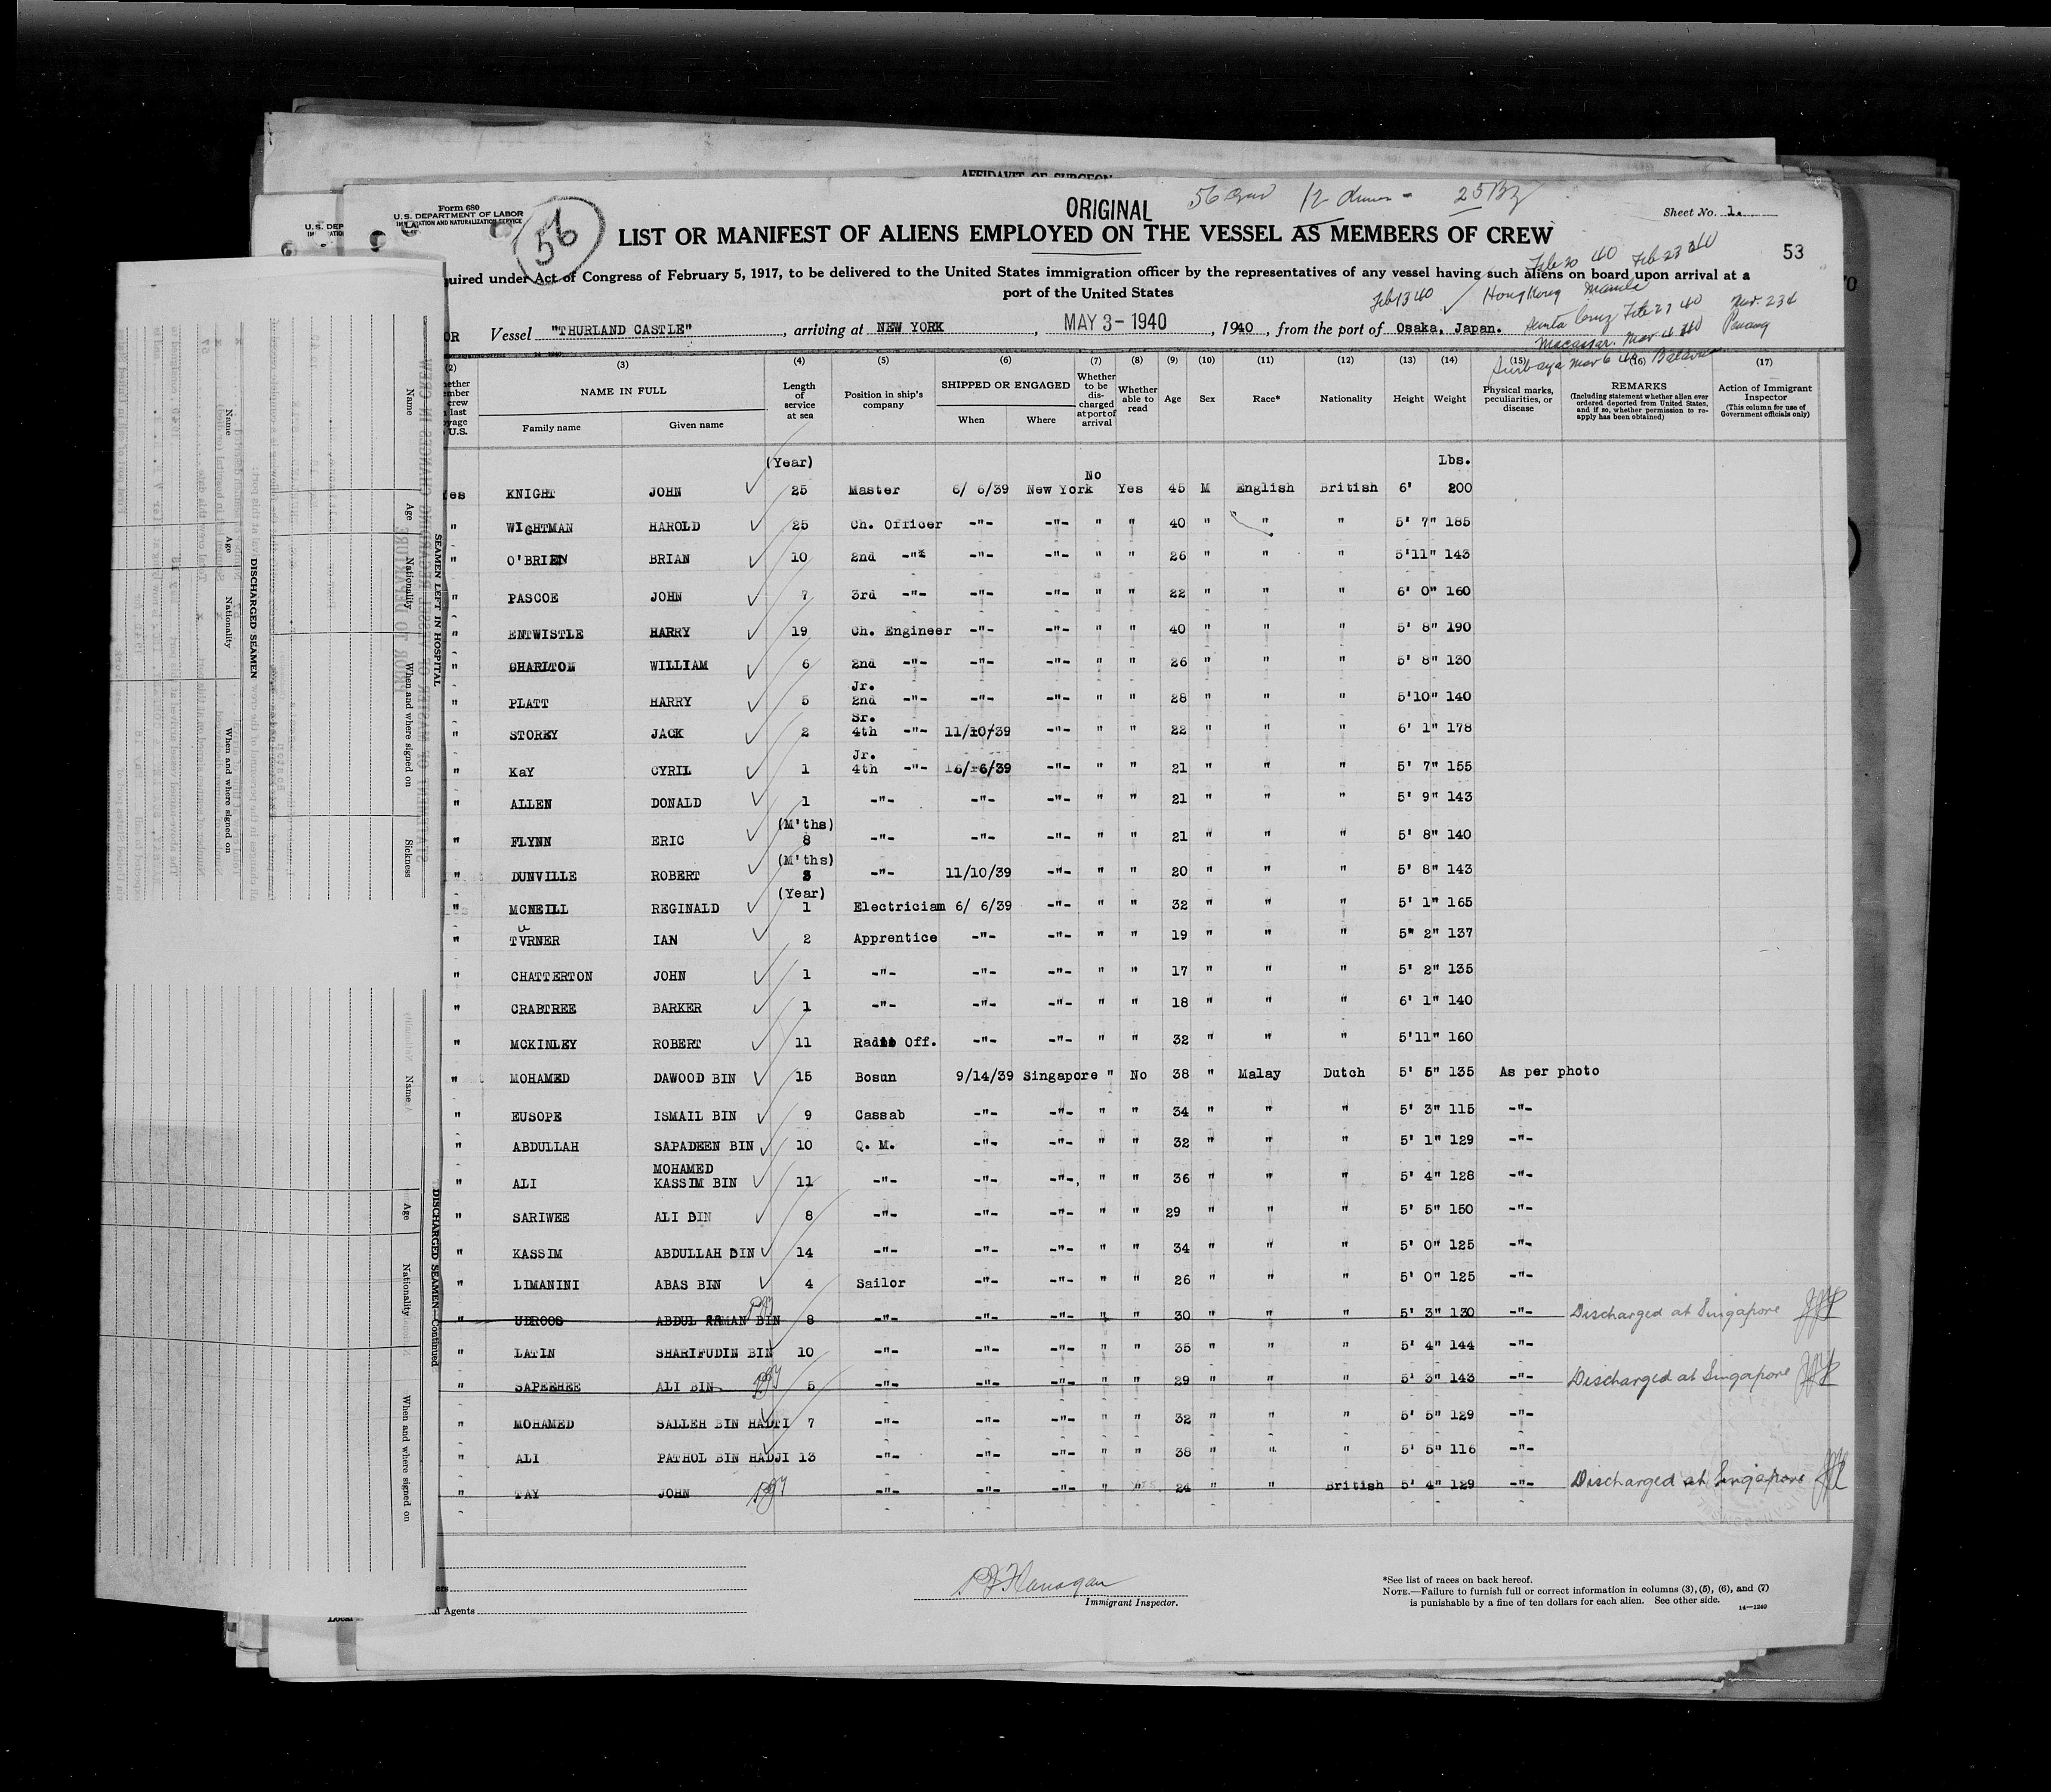 AFFIDAVIT OF SURGEON
Form 680
U.S. DEPARTMENT OF LABOR
IMMIGRATION AND NATURALIZATION SERVICE
56
ORIGINAL
12
Sheet No. 1.
LIST OR MANIFEST OF ALIENS EMPLOYED ON THE VESSEL AS MEMBERS OF CREW
53
Feb 20 40 Feb 23 40
quired under Act of Congress of February 5, 1917, to be delivered to the United States immigration officer by the representatives of any vessel having such aliens on board upon arrival at a
port of the United States
Feb 13 40 HongKong Manila
OR Vessel "THURLAND CASTLE", arriving at NEW YORK, MAY 3 - 1940, 1940, from the port of Osaka, Japan.
Feb 27 40 Penang
Macassar. Mar 4 40
Surbaya Mar 6 40 Batavia
(2) (3) (4) (5) (6) (7) (8) (9) (10) (11) (12) (13) (14) (15) (16) (17)
NAME IN FULL
Family name Given name
Length of service at sea
Position in ship's company
SHIPPED OR ENGAGED
When Where
Whether to be discharged at port of arrival
Whether able to read
Age Sex Race* Nationality Height Weight
Physical marks, peculiarities, or disease
REMARKS
(Including statement whether alien ever ordered deported from United States, and if so, whether permission to re-apply has been obtained)
Action of Immigrant Inspector
(This column for use of Government officials only)
(Year) Lbs.
No
es KNIGHT JOHN 25 Master 6/ 6/39 New York Yes 45 M English British 6' 200
" WIGHTMAN HAROLD 25 Ch. Officer -"- -"- " " 40 " " " 5' 7" 185
" O'BRIEN BRIAN 10 2nd -"- -"- -"- " " 26 " " " 5'11" 143
" PASCOE JOHN 7 3rd -"- -"- -"- " " 22 " " " 6' 0" 160
" ENTWISTLE HARRY 19 Ch. Engineer -"- -"- " " 40 " " " 5' 8" 190
" CHARLTON WILLIAM 6 2nd -"- -"- -"- " " 26 " " " 5' 8" 130
Jr.
" PLATT HARRY 5 2nd -"- -"- -"- " " 28 " " " 5'10" 140
Sr.
" STOREY JACK 2 4th -"- 11/10/39 -"- " " 22 " " " 6' 1" 178
Jr.
" KaY CYRIL 1 4th -"- 6/39 -"- " " 21 " " " 5' 7" 155
" ALLEN DONALD 1 -"- -"- -"- " " 21 " " " 5' 9" 143
(M'ths)
" FLYNN ERIC 8 -"- -"- -"- " " 21 " " " 5' 8" 140
(M'ths)
" DUNVILLE ROBERT -"- 11/10/39 -"- " " 20 " " " 5' 8" 143
(Year)
" MCNEILL REGINALD 1 Electrician 6/ 6/39 -"- " " 32 " " " 5' 1" 165
u
" TVRNER IAN 2 Apprentice -"- -"- " " 19 " " " 5" 2" 137
" CHATTERTON JOHN 1 -"- -"- -"- " " 17 " " " 5' 2" 135
" CRABTREE BARKER 1 -"- -"- -"- " " 18 " " " 6' 1" 140
" MCKINLEY ROBERT 11 Radio Off. -"- -"- " " 32 " " " 5'11" 160
" MOHAMED DAWOOD BIN 15 Bosun 9/14/39 Singapore " No 38 " Malay Dutch 5' 5" 135 As per photo
" EUSOPE ISMAIL BIN 9 Cassab -"- -"- " " 34 " " " 5' 3" 115 -"-
" ABDULLAH SAPADEEN BIN 10 Q. M. -"- -"- " " 32 " " " 5' 1" 129 -"-
MOHAMED
" ALI KASSIM BIN 11 -"- -"- -"-, " " 36 " " " 5' 4" 128 -"-
" SARIWEE ALI BIN 8 -"- -"- -"- " " 29 " " " 5' 5" 150 -"-
" KASSIM ABDULLAH BIN 14 -"- -"- -"- " " 34 " " " 5' 0" 125 -"-
" LIMANINI ABAS BIN 4 Sailor -"- -"- " " 26 " " " 5' 0" 125 -"-
" UDROOS ABDUL BIN 8 -"- -"- -"- " " 30 " " " 5' 3" 130 -"- Discharged at Singapore
" LATIN SHARIFUDIN BIN 10 -"- -"- -"- " " 35 " " " 5' 4" 144 -"-
" SAPEEHEE ALI BIN 5 -"- -"- -"- " " 29 " " " 5' 3" 143 -"- Discharged at Singapore
" MOHAMED SALLEH BIN HADTI 7 -"- -"- -"- " " 32 " " " 5' 5" 129 -"-
" ALI PATHOL BIN HADJI 13 -"- -"- -"- " " 38 " " " 5' 5" 116 -"-
" TAY JOHN -"- -"- -"- " YES 24 " " British 5' 4" 129 -"- Discharged at Singapore
Agents
P J Flanagan
Immigrant Inspector.
*See list of races on back hereof.
NOTE.—Failure to furnish full or correct information in columns (3), (5), (6), and (7)
is punishable by a fine of ten dollars for each alien. See other side.
14—1240
SEAMEN LEFT IN HOSPITAL
Name Age Nationality When and where signed on Sickness
DISCHARGED SEAMEN
Name Age Nationality When and where signed on
DISCHARGED SEAMEN—Continued
Name Age Nationality When and where signed on